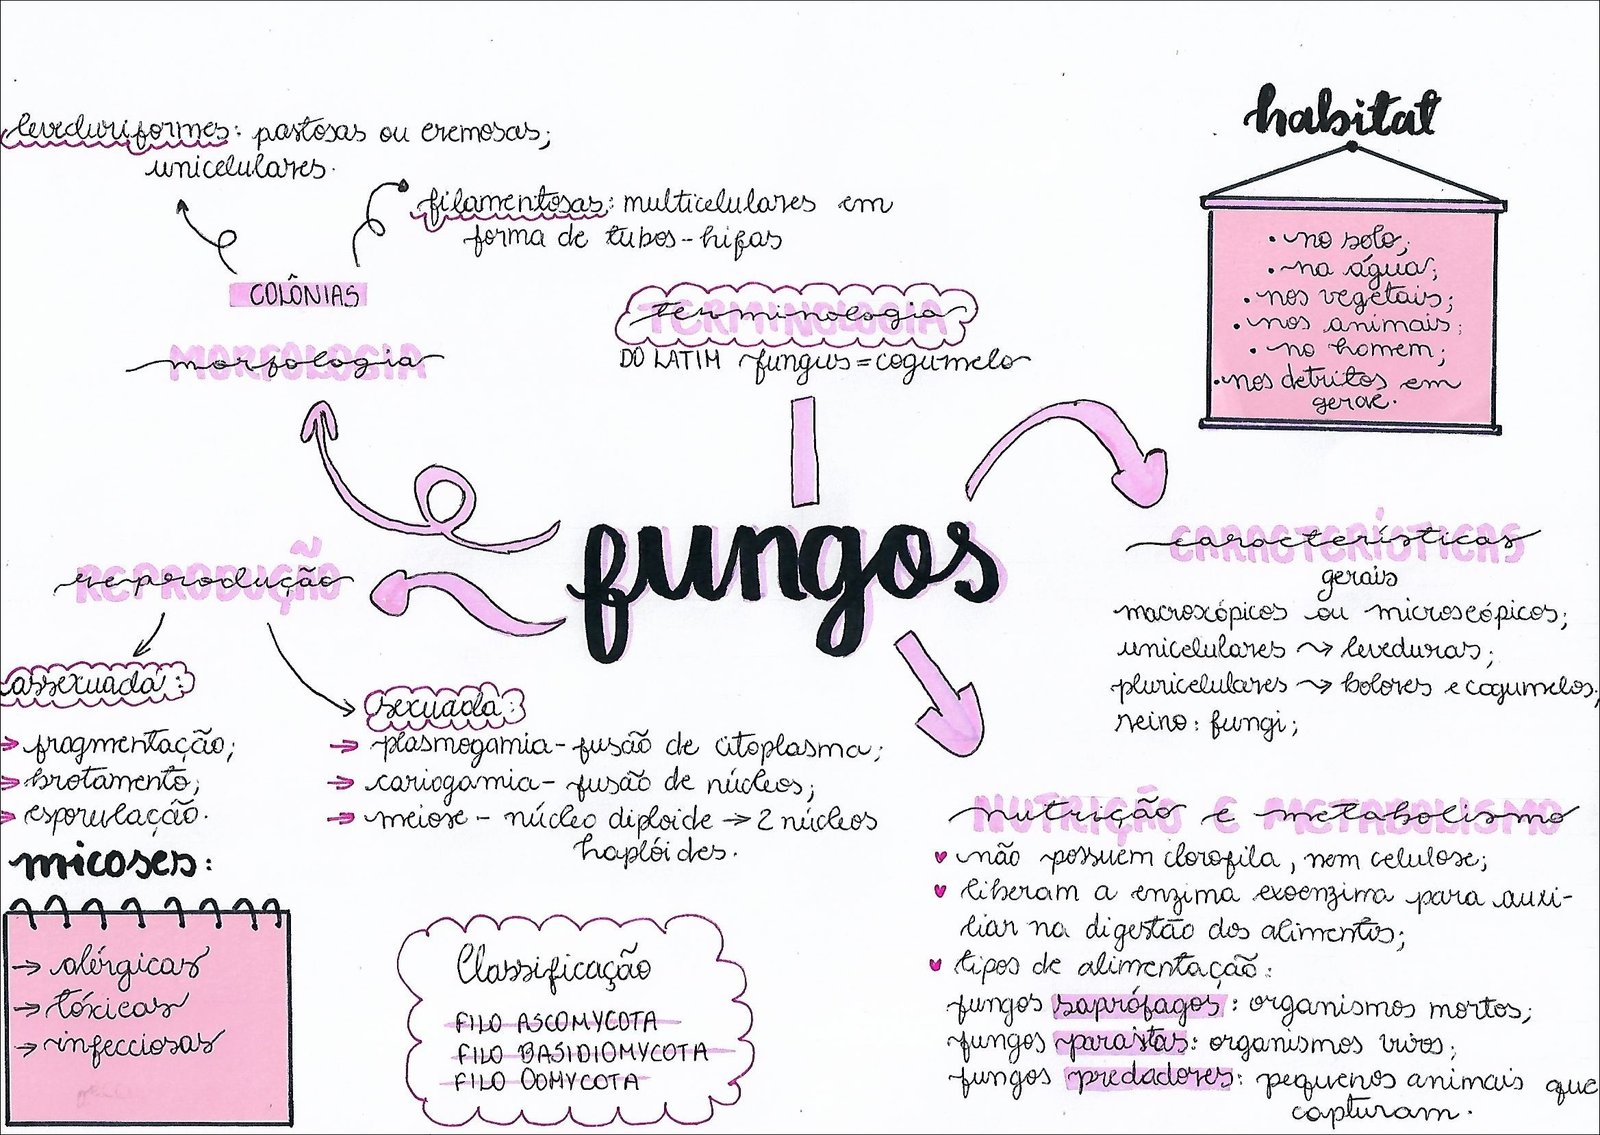 leveduriformes: pastosas ou cremosas;
unicelulares.
filamentosas: multicelulares em
forma de tubos-hifas
COLÔNIAS
MORFOLOGIA
morfologia
TERMINOLOGIA
terminologia
DO LATIM fungus = cogumelo
habitat
• no solo;
• na água;
• nos vegetais;
• nos animais;
• no homem;
• nos detritos em
geral.
fungos
CARACTERÍSTICAS
características
gerais
macroscópicos ou microscópicos;
unicelulares → leveduras;
pluricelulares → bolores e cogumelos;
reino: fungi;
REPRODUÇÃO
reprodução
assexuada:
→ fragmentação;
→ brotamento;
→ esporulação.
sexuada:
→ plasmogamia - fusão de citoplasma;
→ cariogamia - fusão de núcleos;
→ meiose - núcleo diploide → 2 núcleos
haplóides.
NUTRIÇÃO E METABOLISMO
nutrição e metabolismo
♥ não possuem clorofila, nem celulose;
♥ liberam a enzima exoenzima para auxi-
liar na digestão dos alimentos;
♥ tipos de alimentação:
fungos saprófagos: organismos mortos;
fungos parasitas: organismos vivos;
fungos predadores: pequenos animais que
capturam.
micoses:
→ alérgicas
→ tóxicas
→ infecciosas
Classificação
FILO ASCOMYCOTA
FILO BASIDIOMYCOTA
FILO OOMYCOTA